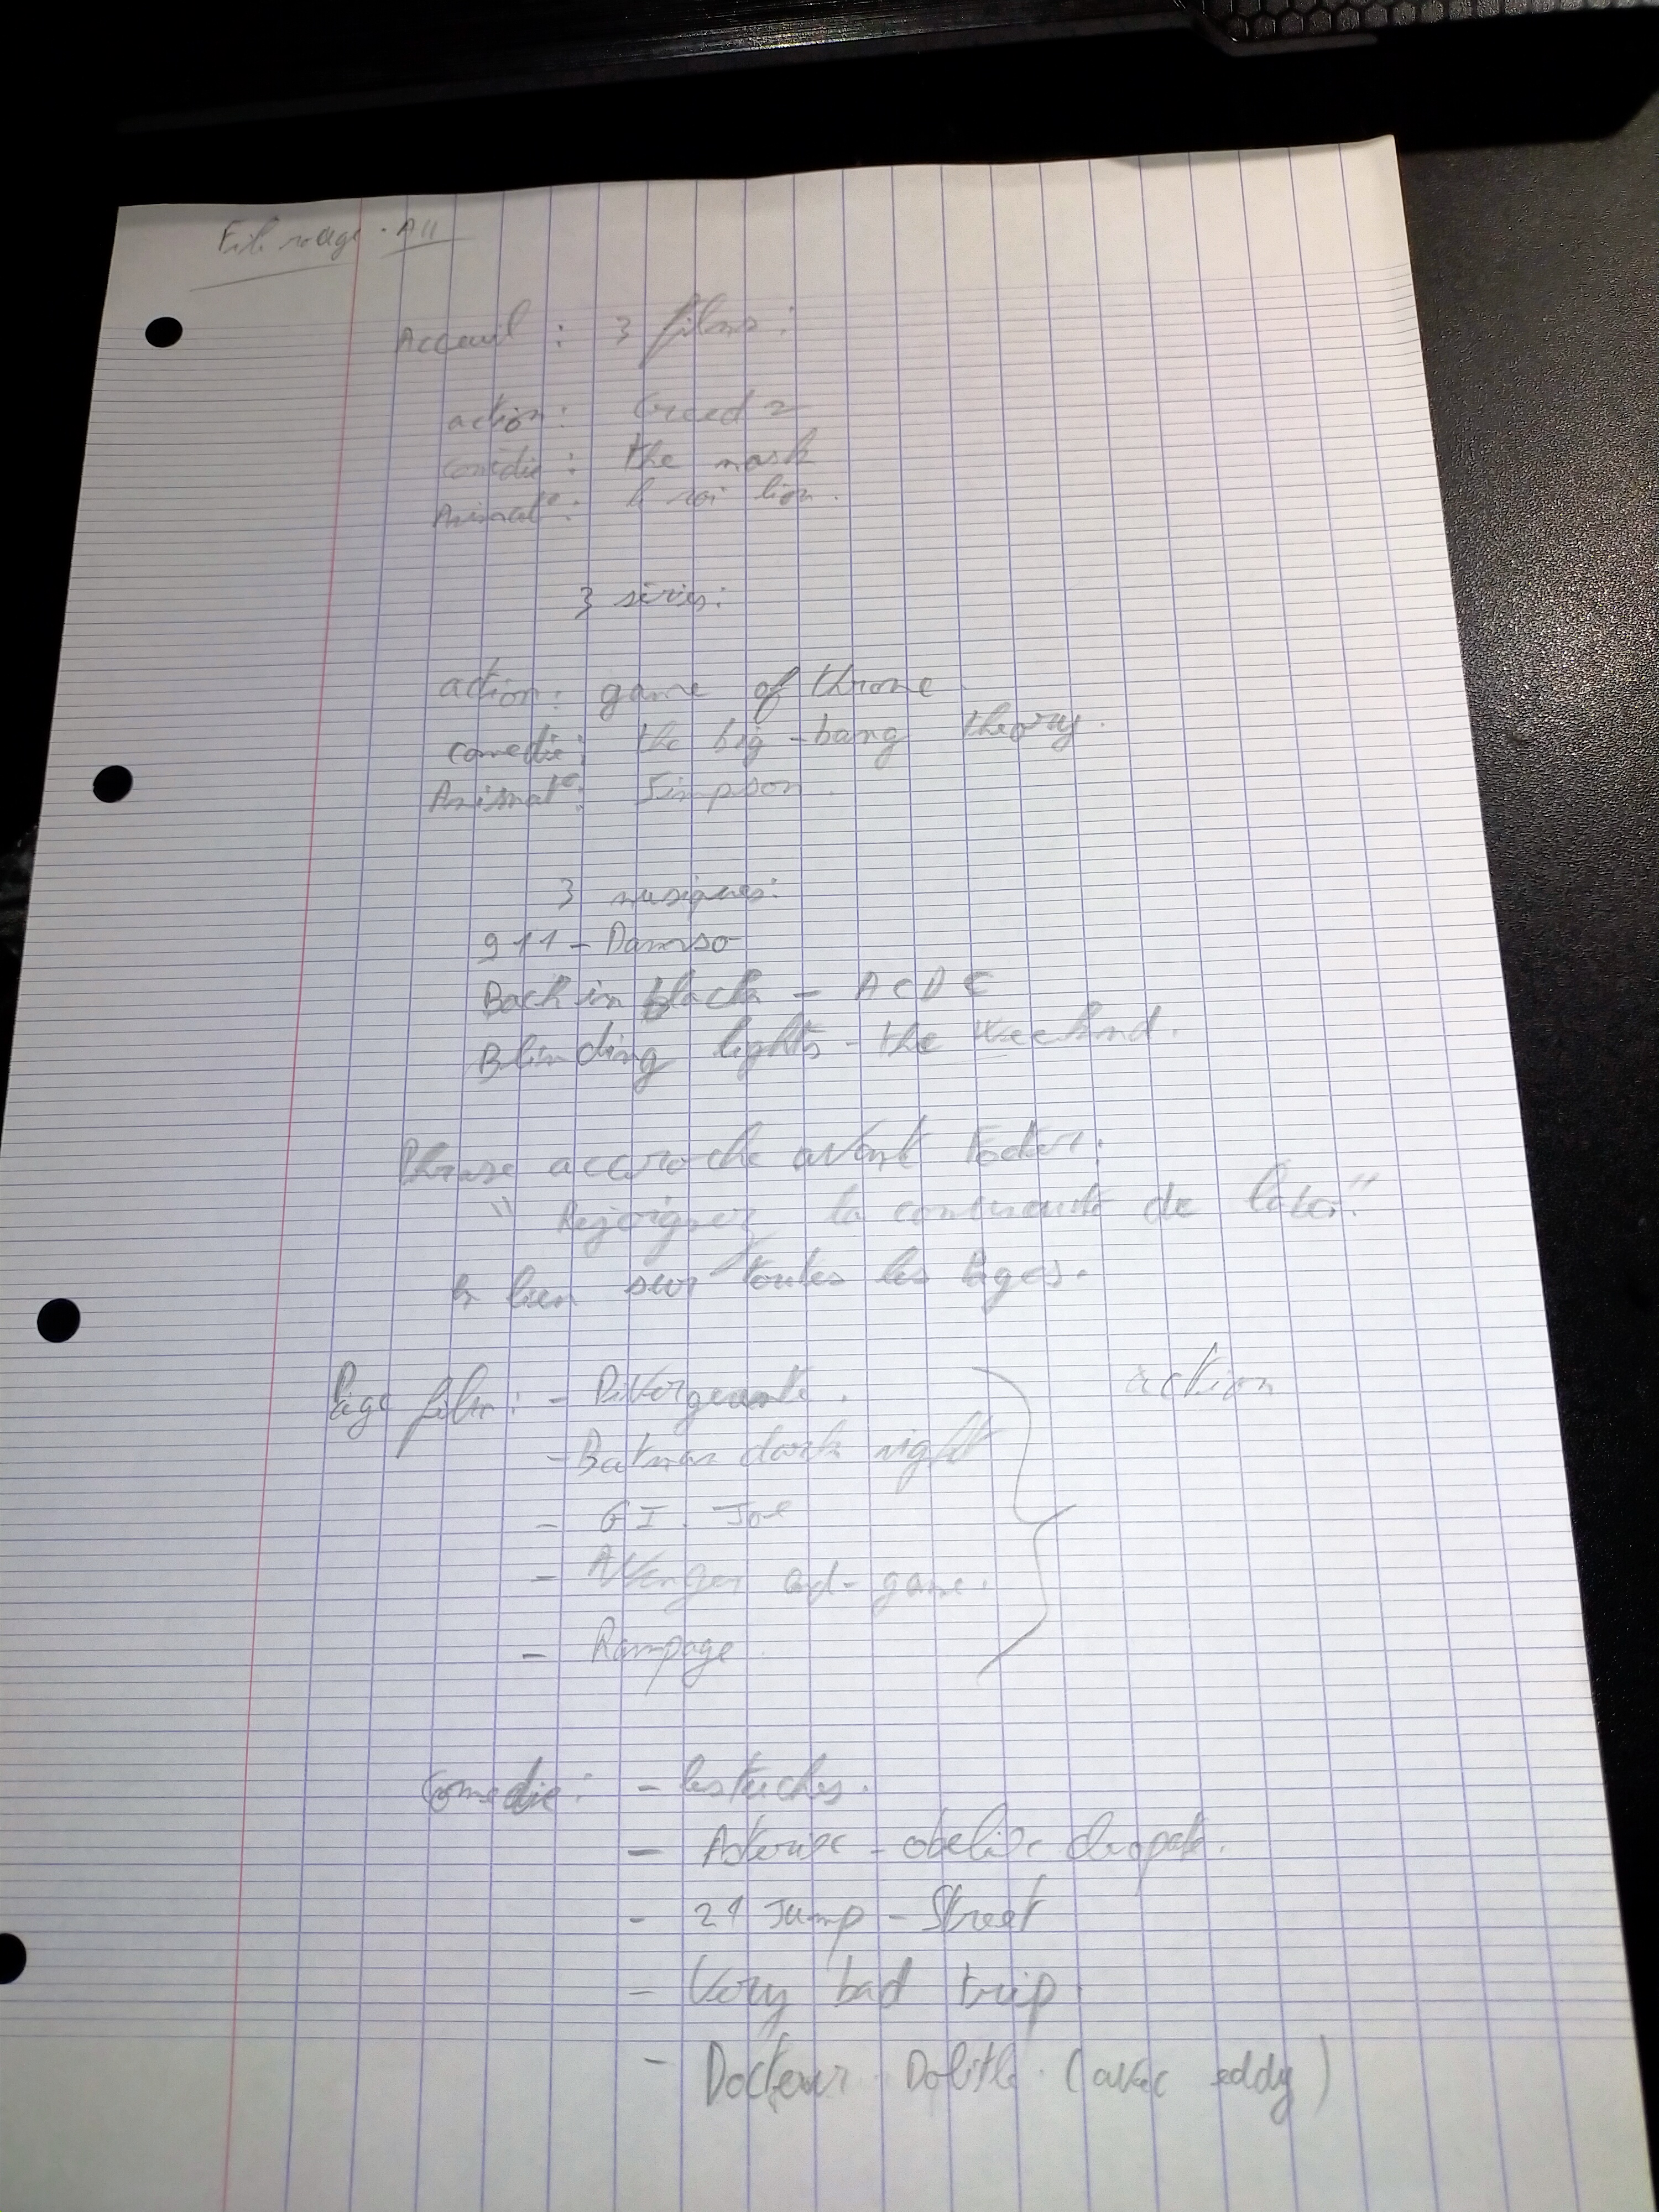 Fil rouge · A11
Acceuil : 3 films :
action : Creed 2
comédie : the mask
Animat° : le roi lion.
3 séries :
action : game of throne
comedie : the big-bang theory.
Animat° : Simpson.
3 musiques :
911 - Damso
Back in black - ACDC
Blinding lights - the Weeknd.
Phrase accroche avant footer :
" Rejoignez la communauté de "
lien sur toutes les pages.
Page film : - Divergeante. action
- Batman dark night
- GI. Joe
- Avenger end-game.
- Rampage.
Comedie : - les tuches.
- Asterix - obelix cleopatr.
- 21 Jump - Street
- Very bad trip
- Docteur Dolitle. (avec eddy)